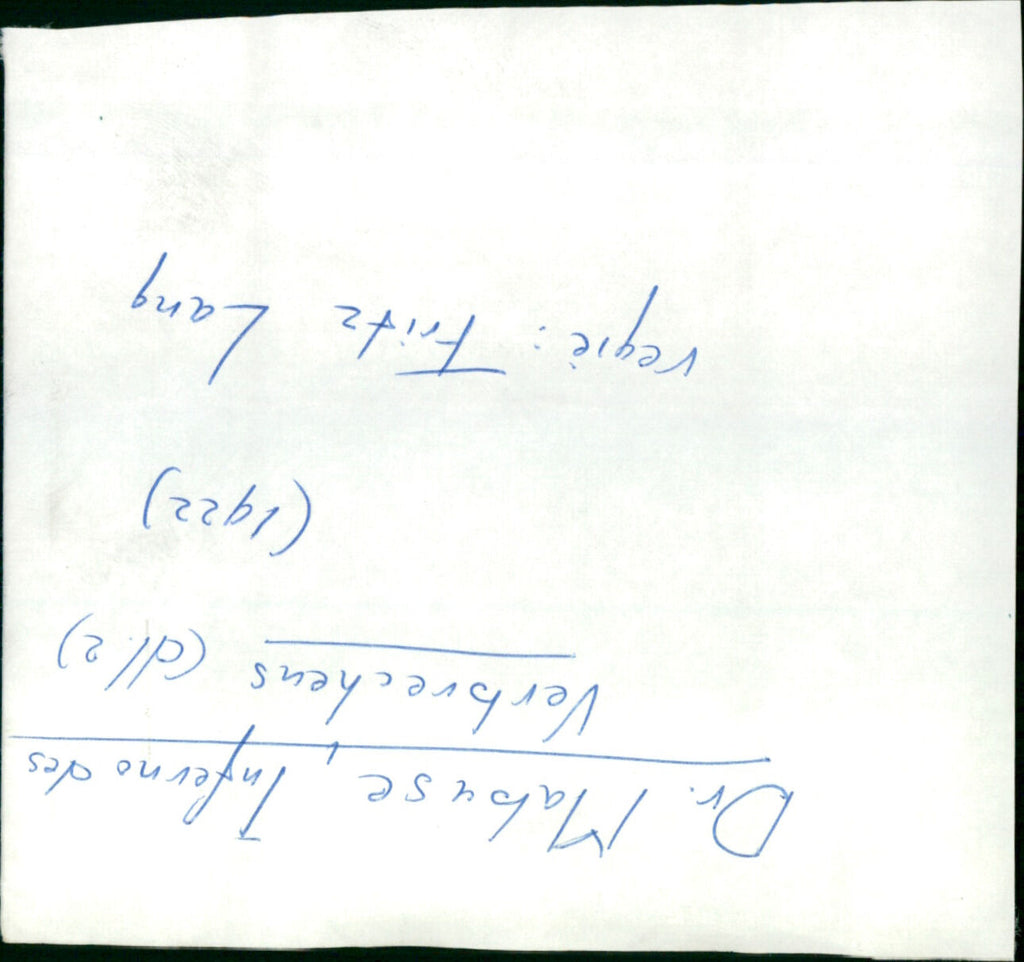 Dr. Mabuse, Inferno des
Verbrechens (dl. 2)
(1922)
regie: Fritz Lang